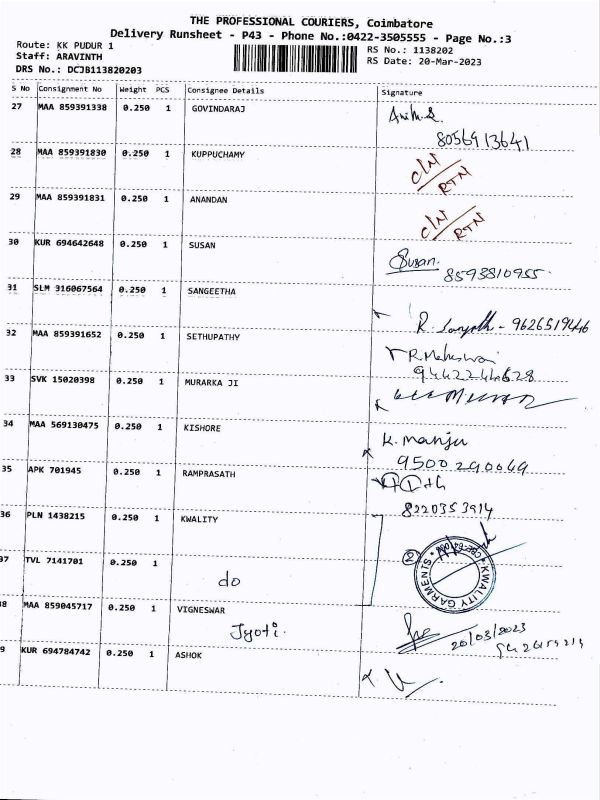 THE PROFESSIONAL COURIERS, Coimbatore
Delivery Runsheet - P43 - Phone No.:0422-3505555 - Page No.:3
Route: KK PUDUR 1
Staff: ARAVINTH
DRS No.: DCJB113820203
RS No.: 1138202
RS Date: 20-Mar-2023
S No Consignment No Weight PCS Consignee Details Signature
27 MAA 859391338 0.250 1 GOVINDARAJ
8056913641
28 MAA 859391830 0.250 1 KUPPUCHAMY
C/N RTN
29 MAA 859391831 0.250 1 ANANDAN
C/N RTN
30 KUR 694642648 0.250 1 SUSAN
Susan.
8593810955
31 SLM 316067564 0.250 1 SANGEETHA
R. - 9626519446
32 MAA 859391652 0.250 1 SETHUPATHY
R. Maheswari
9442244628
33 SVK 15020398 0.250 1 MURARKA JI
34 MAA 569130475 0.250 1 KISHORE
K. Manju
9500290049
35 APK 701945 0.250 1 RAMPRASATH
8220353914
36 PLN 1438215 0.250 1 KWALITY
2
KWALITY GARMENTS
37 TVL 7141701 0.250 1
do
38 MAA 859045717 0.250 1 VIGNESWAR
Jyoti.
20/03/2023
39 KUR 694784742 0.250 1 ASHOK